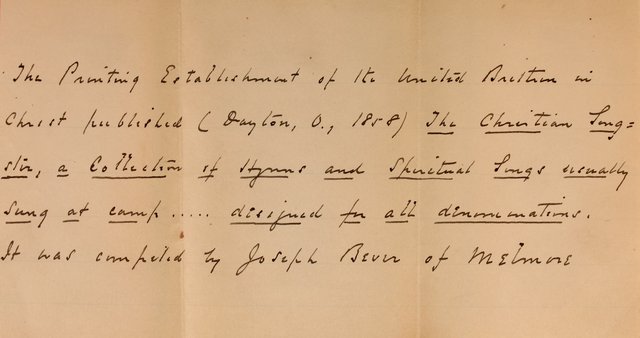 The Printing Establishment of the United Brethren in
Christ published (Dayton, O., 1858) The Christian Song=
ster, a Collection of Hymns and Spiritual Songs usually
sung at camp ..... designed for all denominations.
It was compiled by Joseph Bever of Melmore